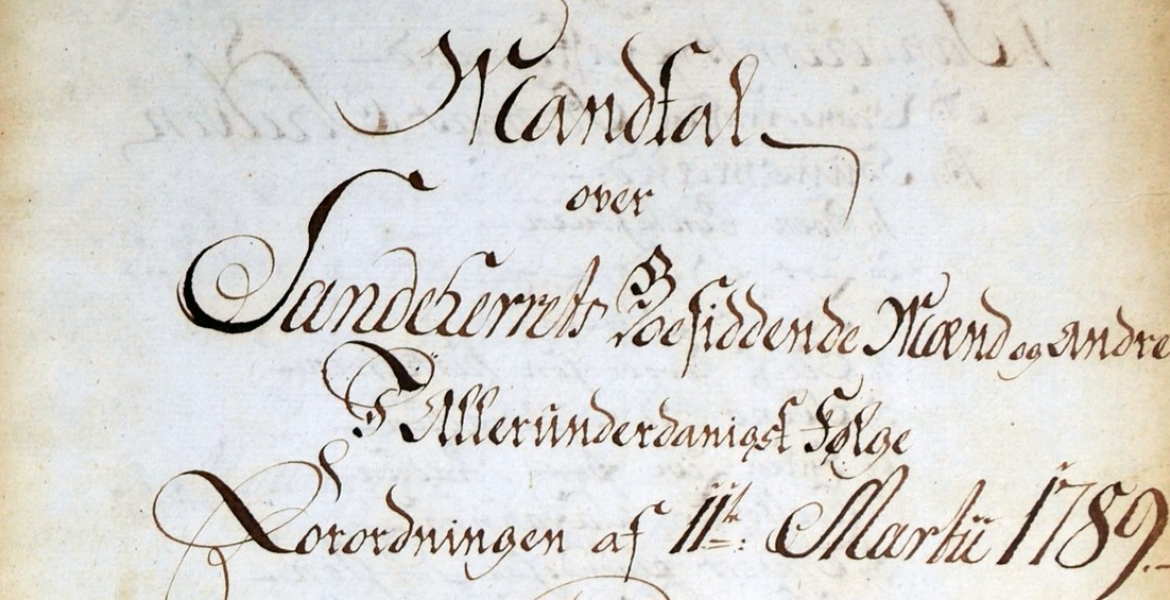 Mandtal
over
Sandeherrets Boesiddende Mænd og andre
I Alleründerdanigst Følge
Forordningen af 11te Martii 1789.